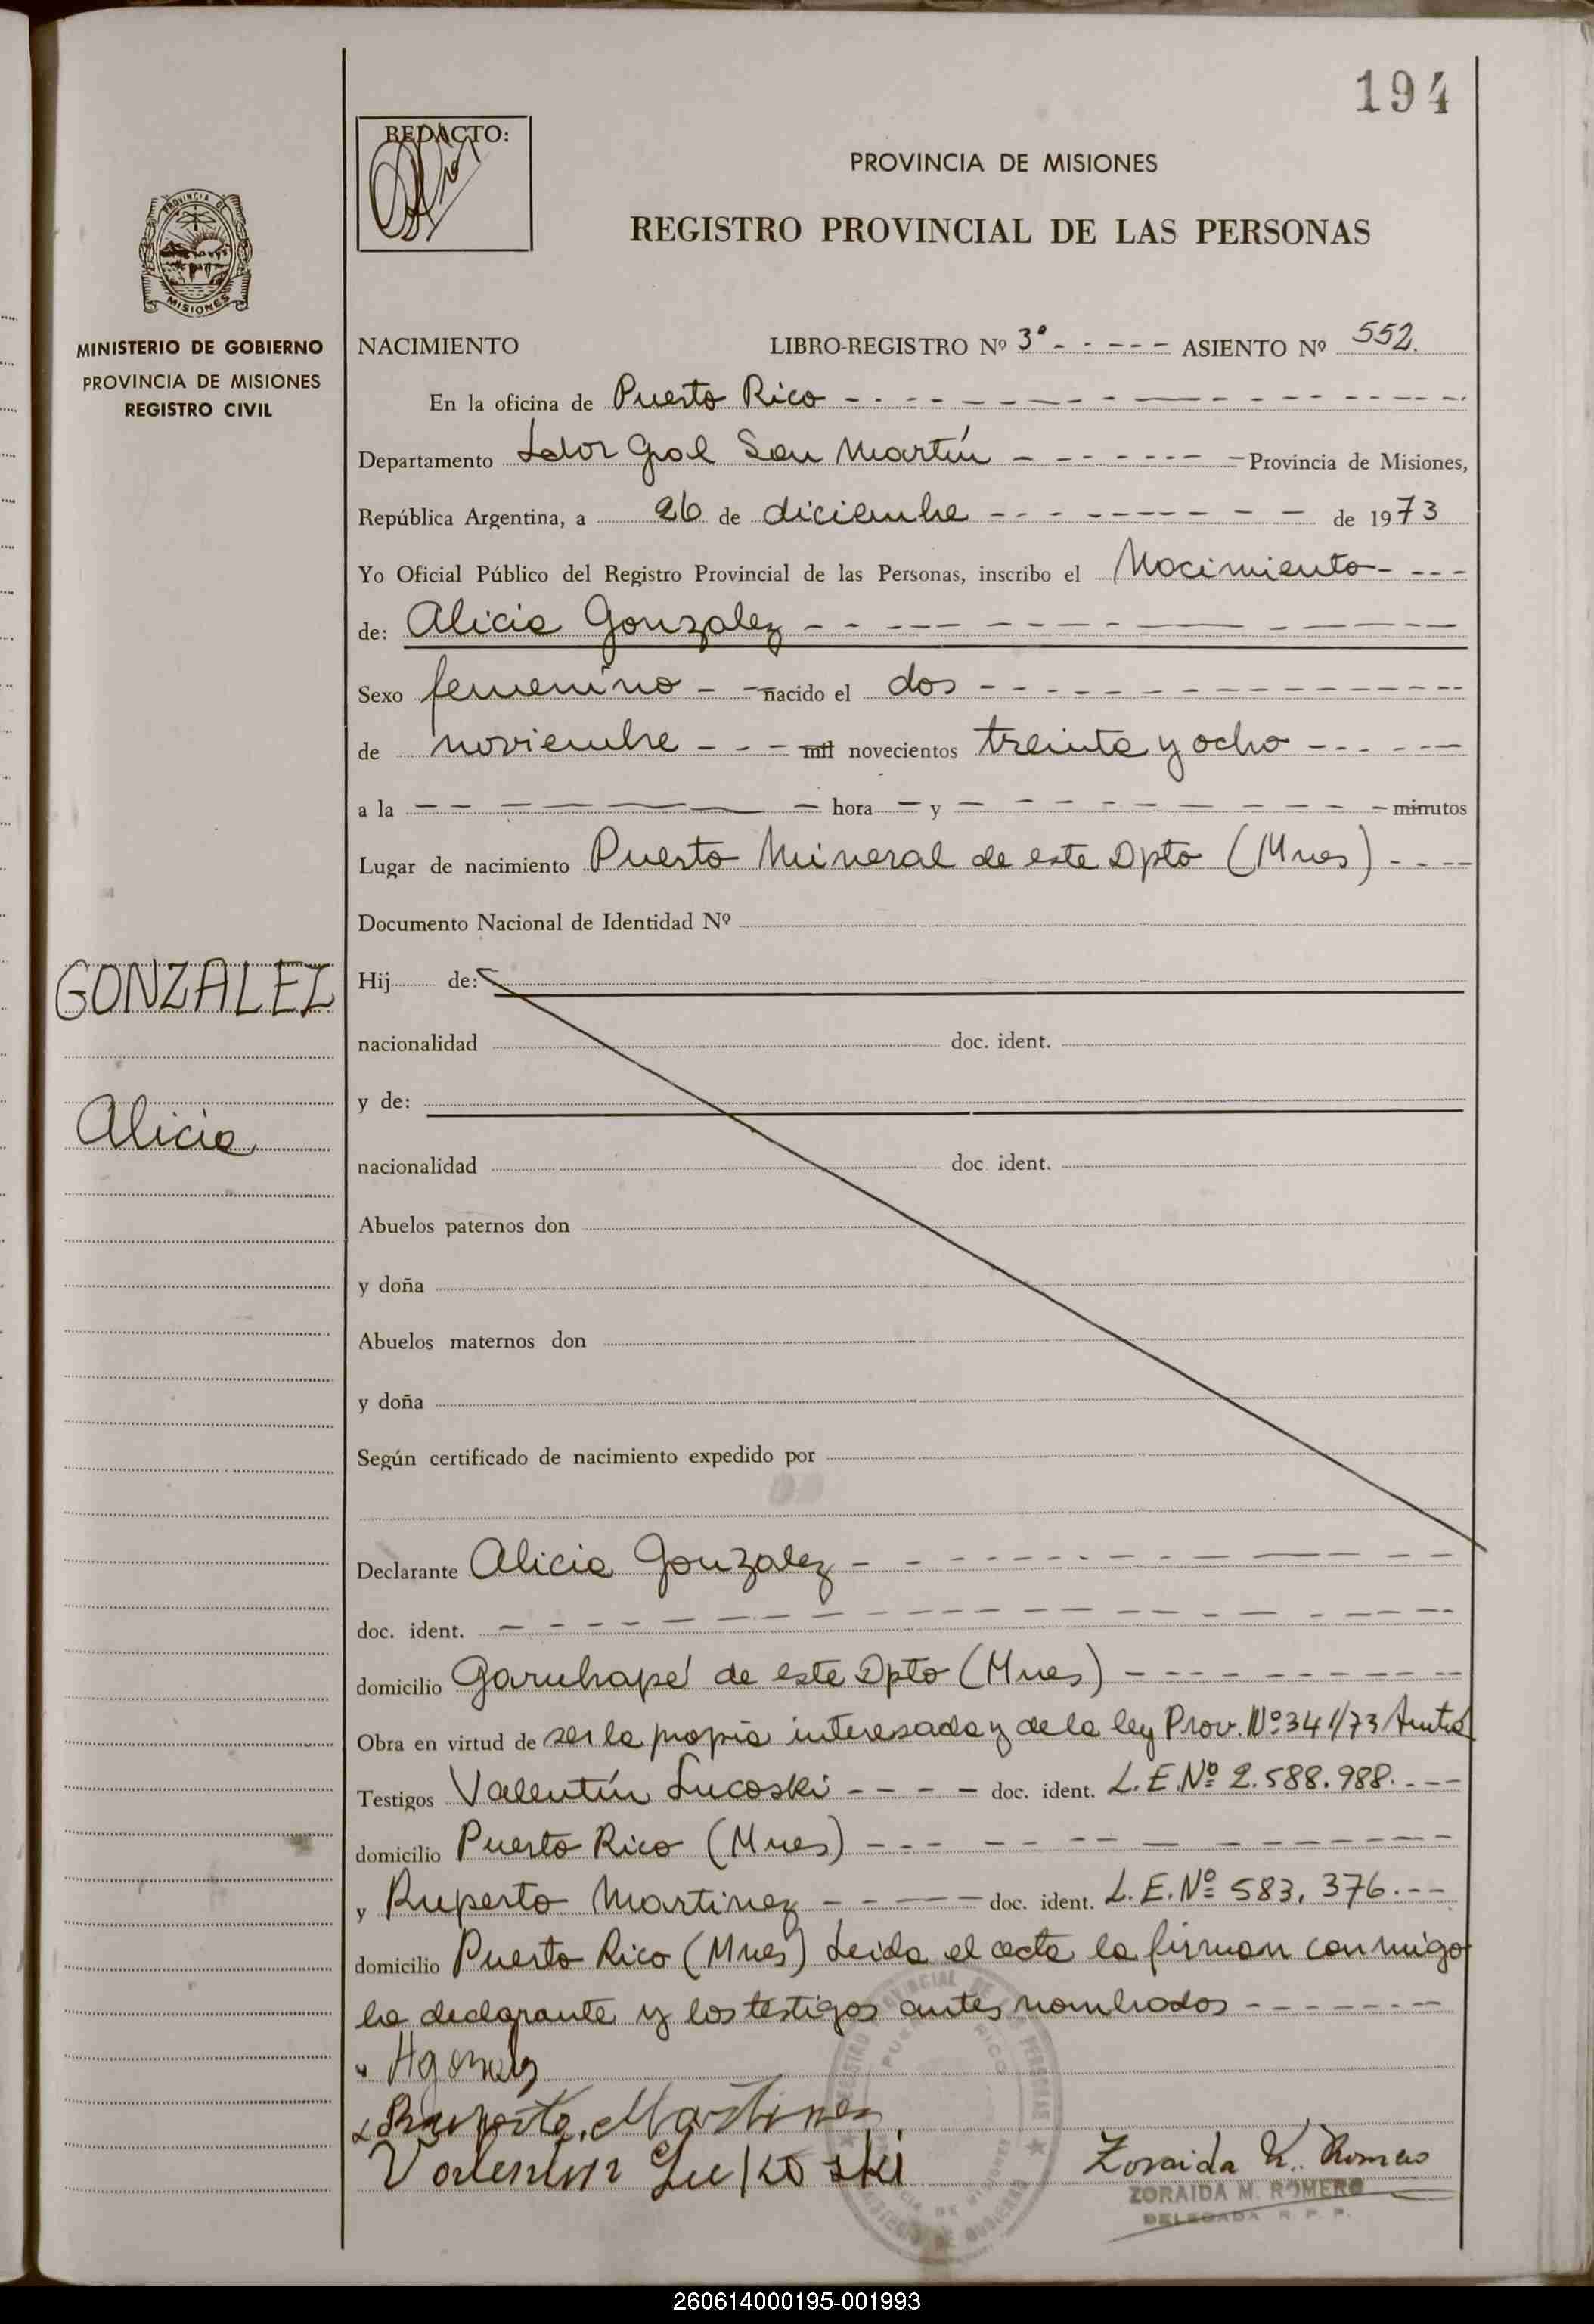 194
REDACTO:
PROVINCIA DE MISIONES
REGISTRO PROVINCIAL DE LAS PERSONAS
PROVINCIA DE
MISIONES
MINISTERIO DE GOBIERNO
PROVINCIA DE MISIONES
REGISTRO CIVIL
NACIMIENTO LIBRO-REGISTRO Nº 3º - - - - - ASIENTO Nº 552.
En la oficina de Puerto Rico
Departamento Ldor Gral San Martín Provincia de Misiones,
República Argentina, a 26 de diciembre de 1973
Yo Oficial Público del Registro Provincial de las Personas, inscribo el Nacimiento
de: Alicia Gonzalez
Sexo femenino nacido el dos
de noviembre mil novecientos treinta y ocho
a la hora y minutos
Lugar de nacimiento Puerto Mineral de este Dpto (Mnes)
Documento Nacional de Identidad Nº
GONZALEZ
Alicia
Hij de:
nacionalidad doc. ident.
y de:
nacionalidad doc. ident.
Abuelos paternos don
y doña
Abuelos maternos don
y doña
Según certificado de nacimiento expedido por
Declarante Alicia Gonzalez
doc. ident.
domicilio Garuhapé de este Dpto (Mnes)
Obra en virtud de ser la propia interesada y de la ley Prov. Nº 341/73
Testigos Valentín Lucoski doc. ident. L.E. Nº 2.588.988.
domicilio Puerto Rico (Mnes)
y Ruperto Martinez doc. ident. L.E. Nº 583.376.
domicilio Puerto Rico (Mnes) Leida el acta la firman conmigo
la declarante y los testigos antes nombrados
Ruperto Martinez
Valentin Lukoski
Zoraida M. Romero
ZORAIDA M. ROMERO
DELEGADA R. P. P.
260614000195-001993